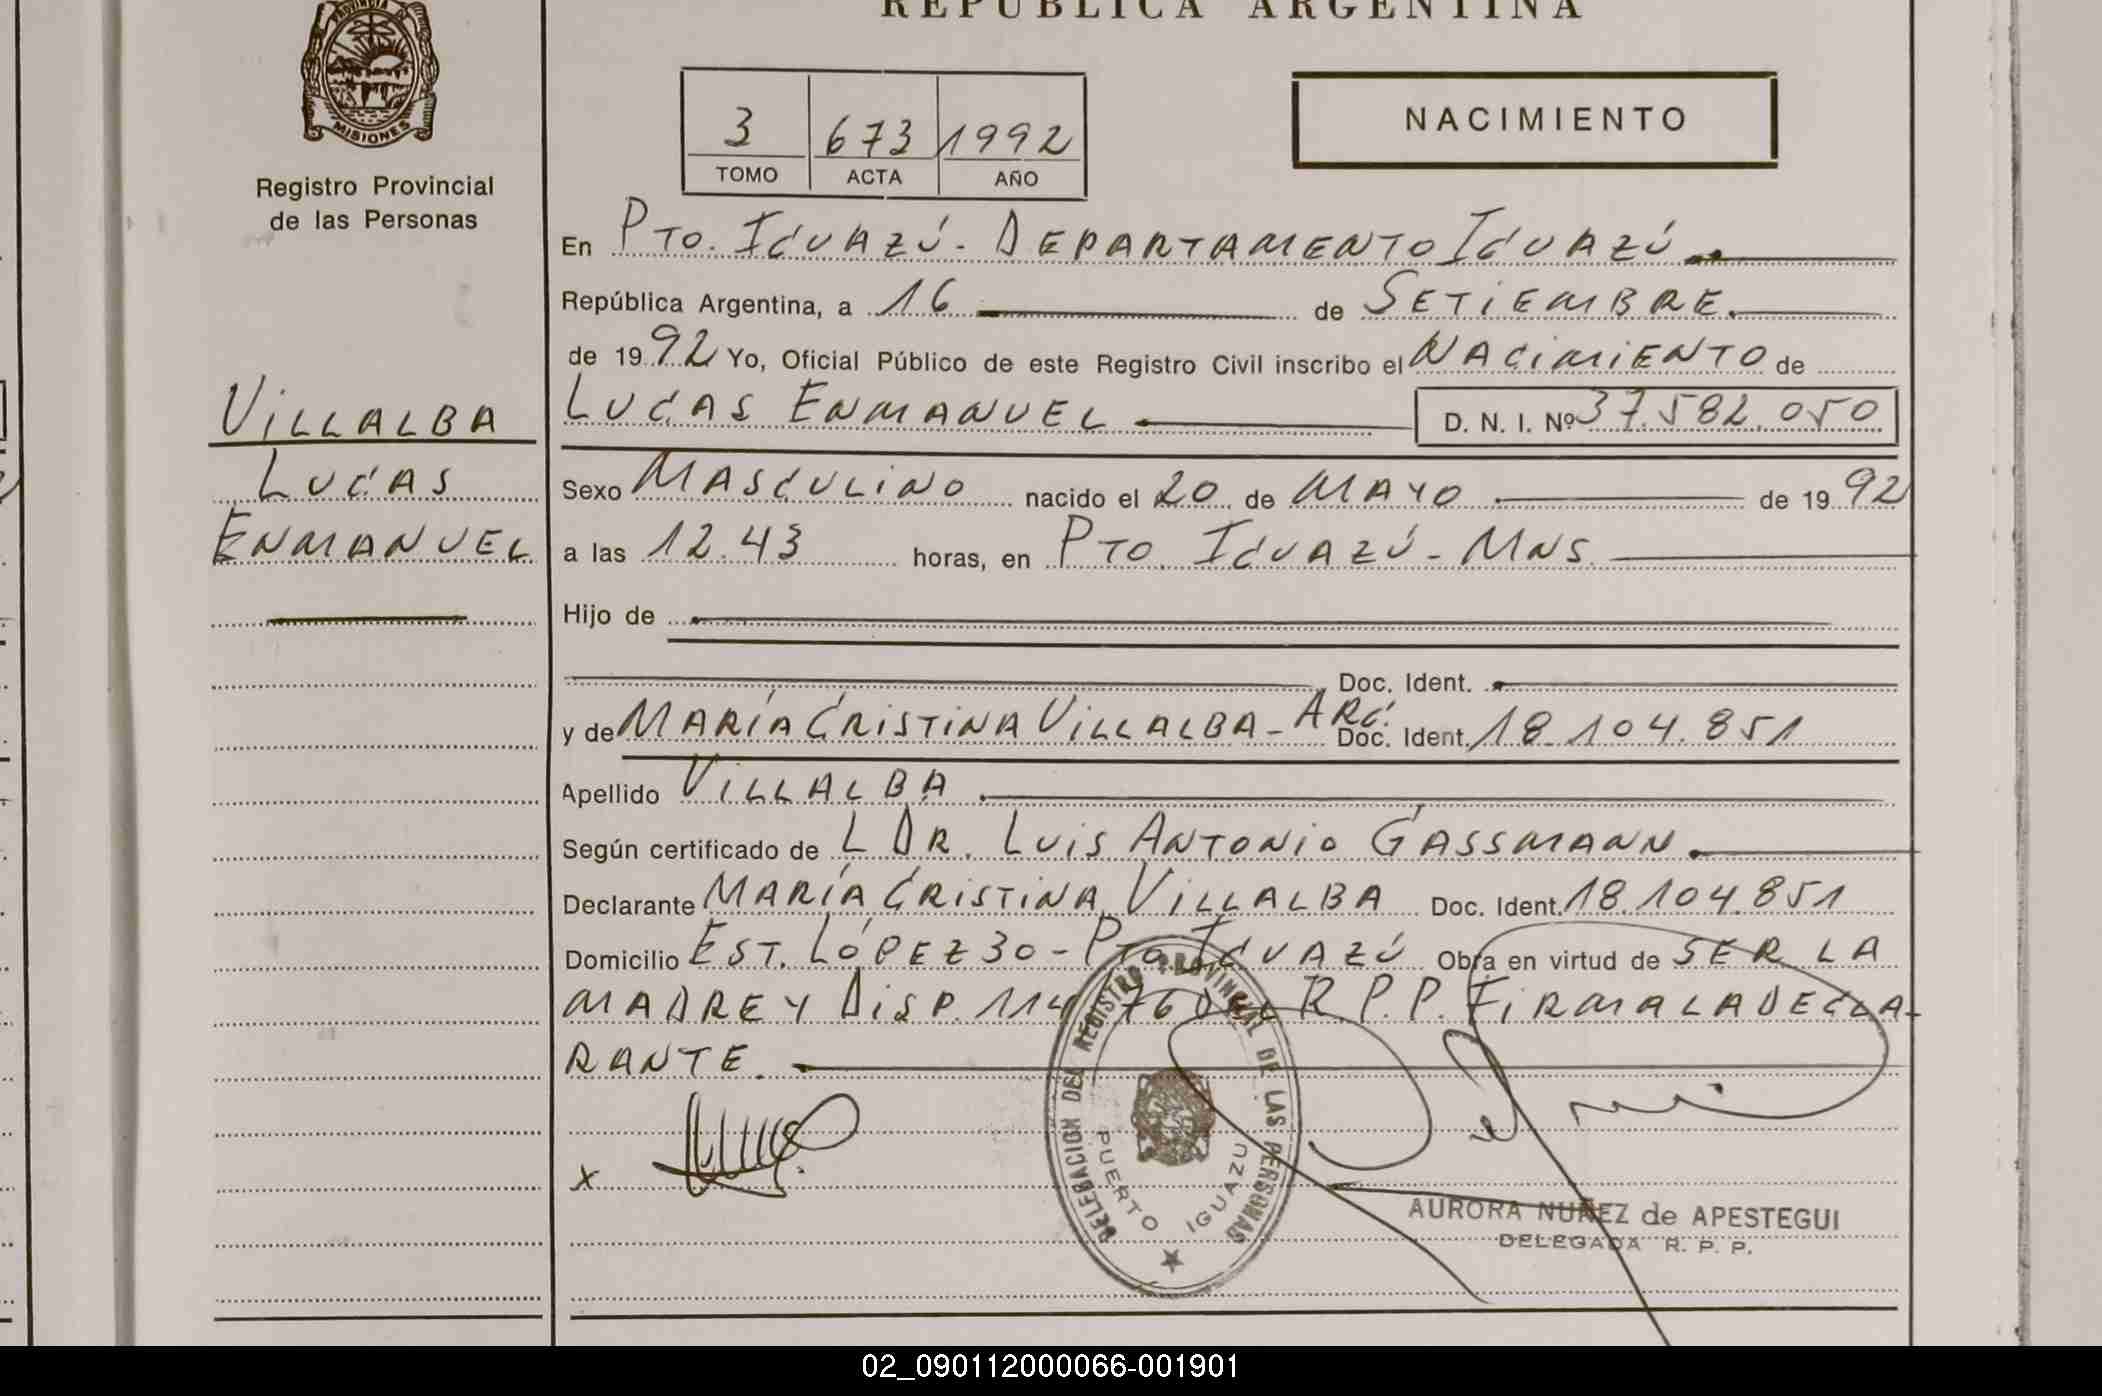 REPUBLICA ARGENTINA
PROVINCIA DE
MISIONES
Registro Provincial
de las Personas
3 673 1992
TOMO ACTA AÑO
NACIMIENTO
En PTO. IGUAZÚ - DEPARTAMENTO IGUAZÚ.
República Argentina, a 16 de SETIEMBRE.
de 1992 Yo, Oficial Público de este Registro Civil inscribo el NACIMIENTO de
VILLALBA
LUCAS
ENMANUEL
LUCAS ENMANUEL D. N. I. Nº 37.582.050
Sexo MASCULINO nacido el 20 de MAYO de 1992
a las 12.43 horas, en PTO. IGUAZÚ - MNS.
Hijo de
Doc. Ident.
y de MARÍA CRISTINA VILLALBA - ARG. Doc. Ident. 18.104.851
Apellido VILLALBA
Según certificado de L DR. LUIS ANTONIO GASSMANN.
Declarante MARÍA CRISTINA VILLALBA Doc. Ident. 18.104.851
Domicilio EST. LÓPEZ 30 - PTO. IGUAZÚ Obra en virtud de SER LA
MADRE Y DISP. 114/76 DEL R.P.P. FIRMA LA DECLA-
RANTE.
x
DELEGACION DEL REGISTRO PROVINCIAL DE LAS PERSONAS
PUERTO IGUAZU
AURORA NUÑEZ de APESTEGUI
DELEGADA R. P. P.
02_090112000066-001901